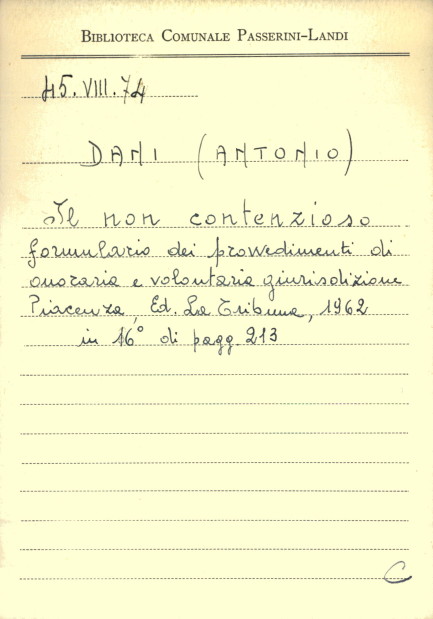 BIBLIOTECA COMUNALE PASSERINI-LANDI
45.VIII.74
DANI (ANTONIO)
Il non contenzioso
formulario dei provvedimenti di
onoraria e volontaria giurisdizione
Piacenza, Ed. La Tribuna, 1962
in 16° di pagg. 213
C